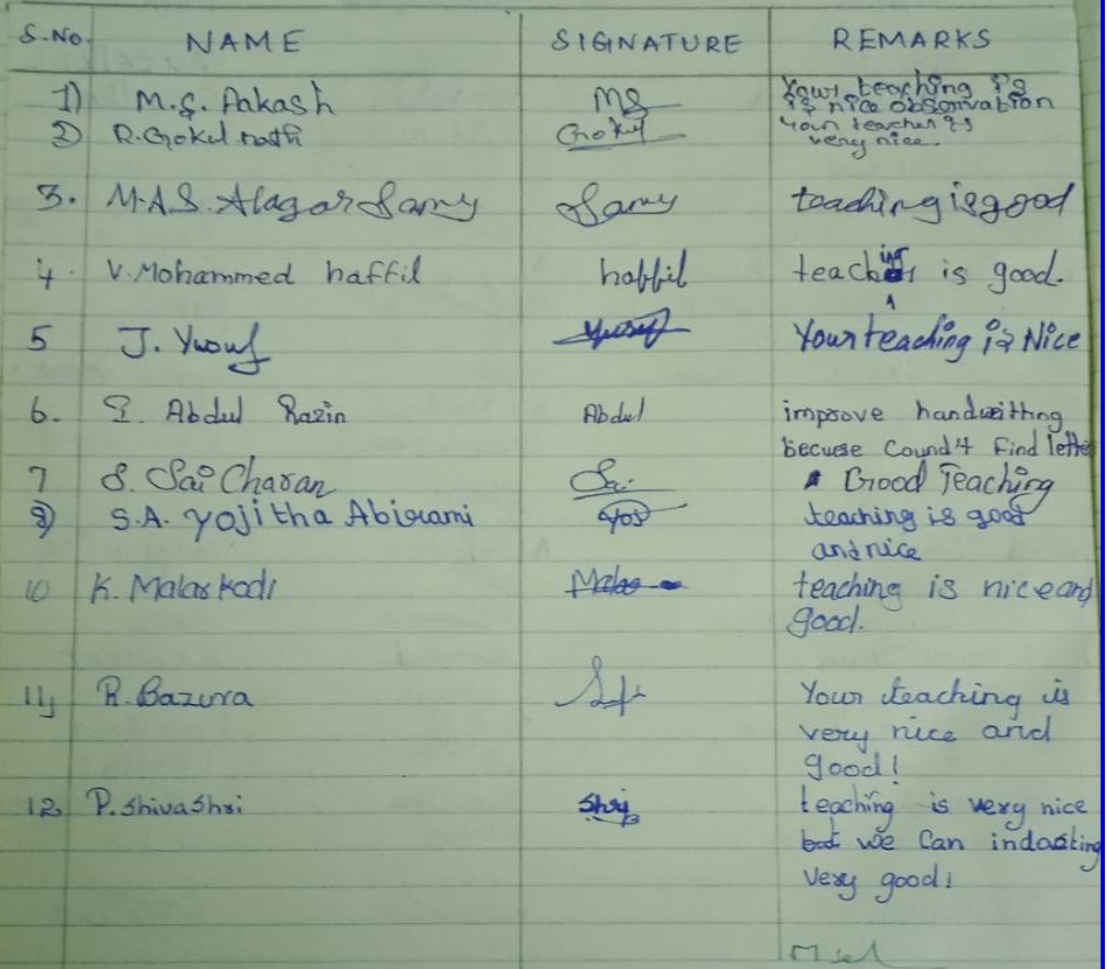 S.No. NAME SIGNATURE REMARKS
1) M.S. Pakash MS Your teaching is
is nice observation
2) R.Gokul nath Gokul your teacher is
very nice.
3. M.A.S. Alagar Samy Samy teaching is good
4. V. Mohammed haffil haffil teaching is good.
5 J. Yusuf Yusuf Your teaching is Nice
6. I. Abdul Razin Abdul improve handwitting
becuese Cound't find letter
7 S. Sai Charan Sai Good Teaching
9) S.A. Yojitha Abirami Yoji teaching is good
and nice
10 K. Malarkodi Malar teaching is nice and
good.
11) R. Bazura Your teaching is
very nice and
good!
12. P. Shivashri Shri teaching is very nice
but we Can indasting
very good!